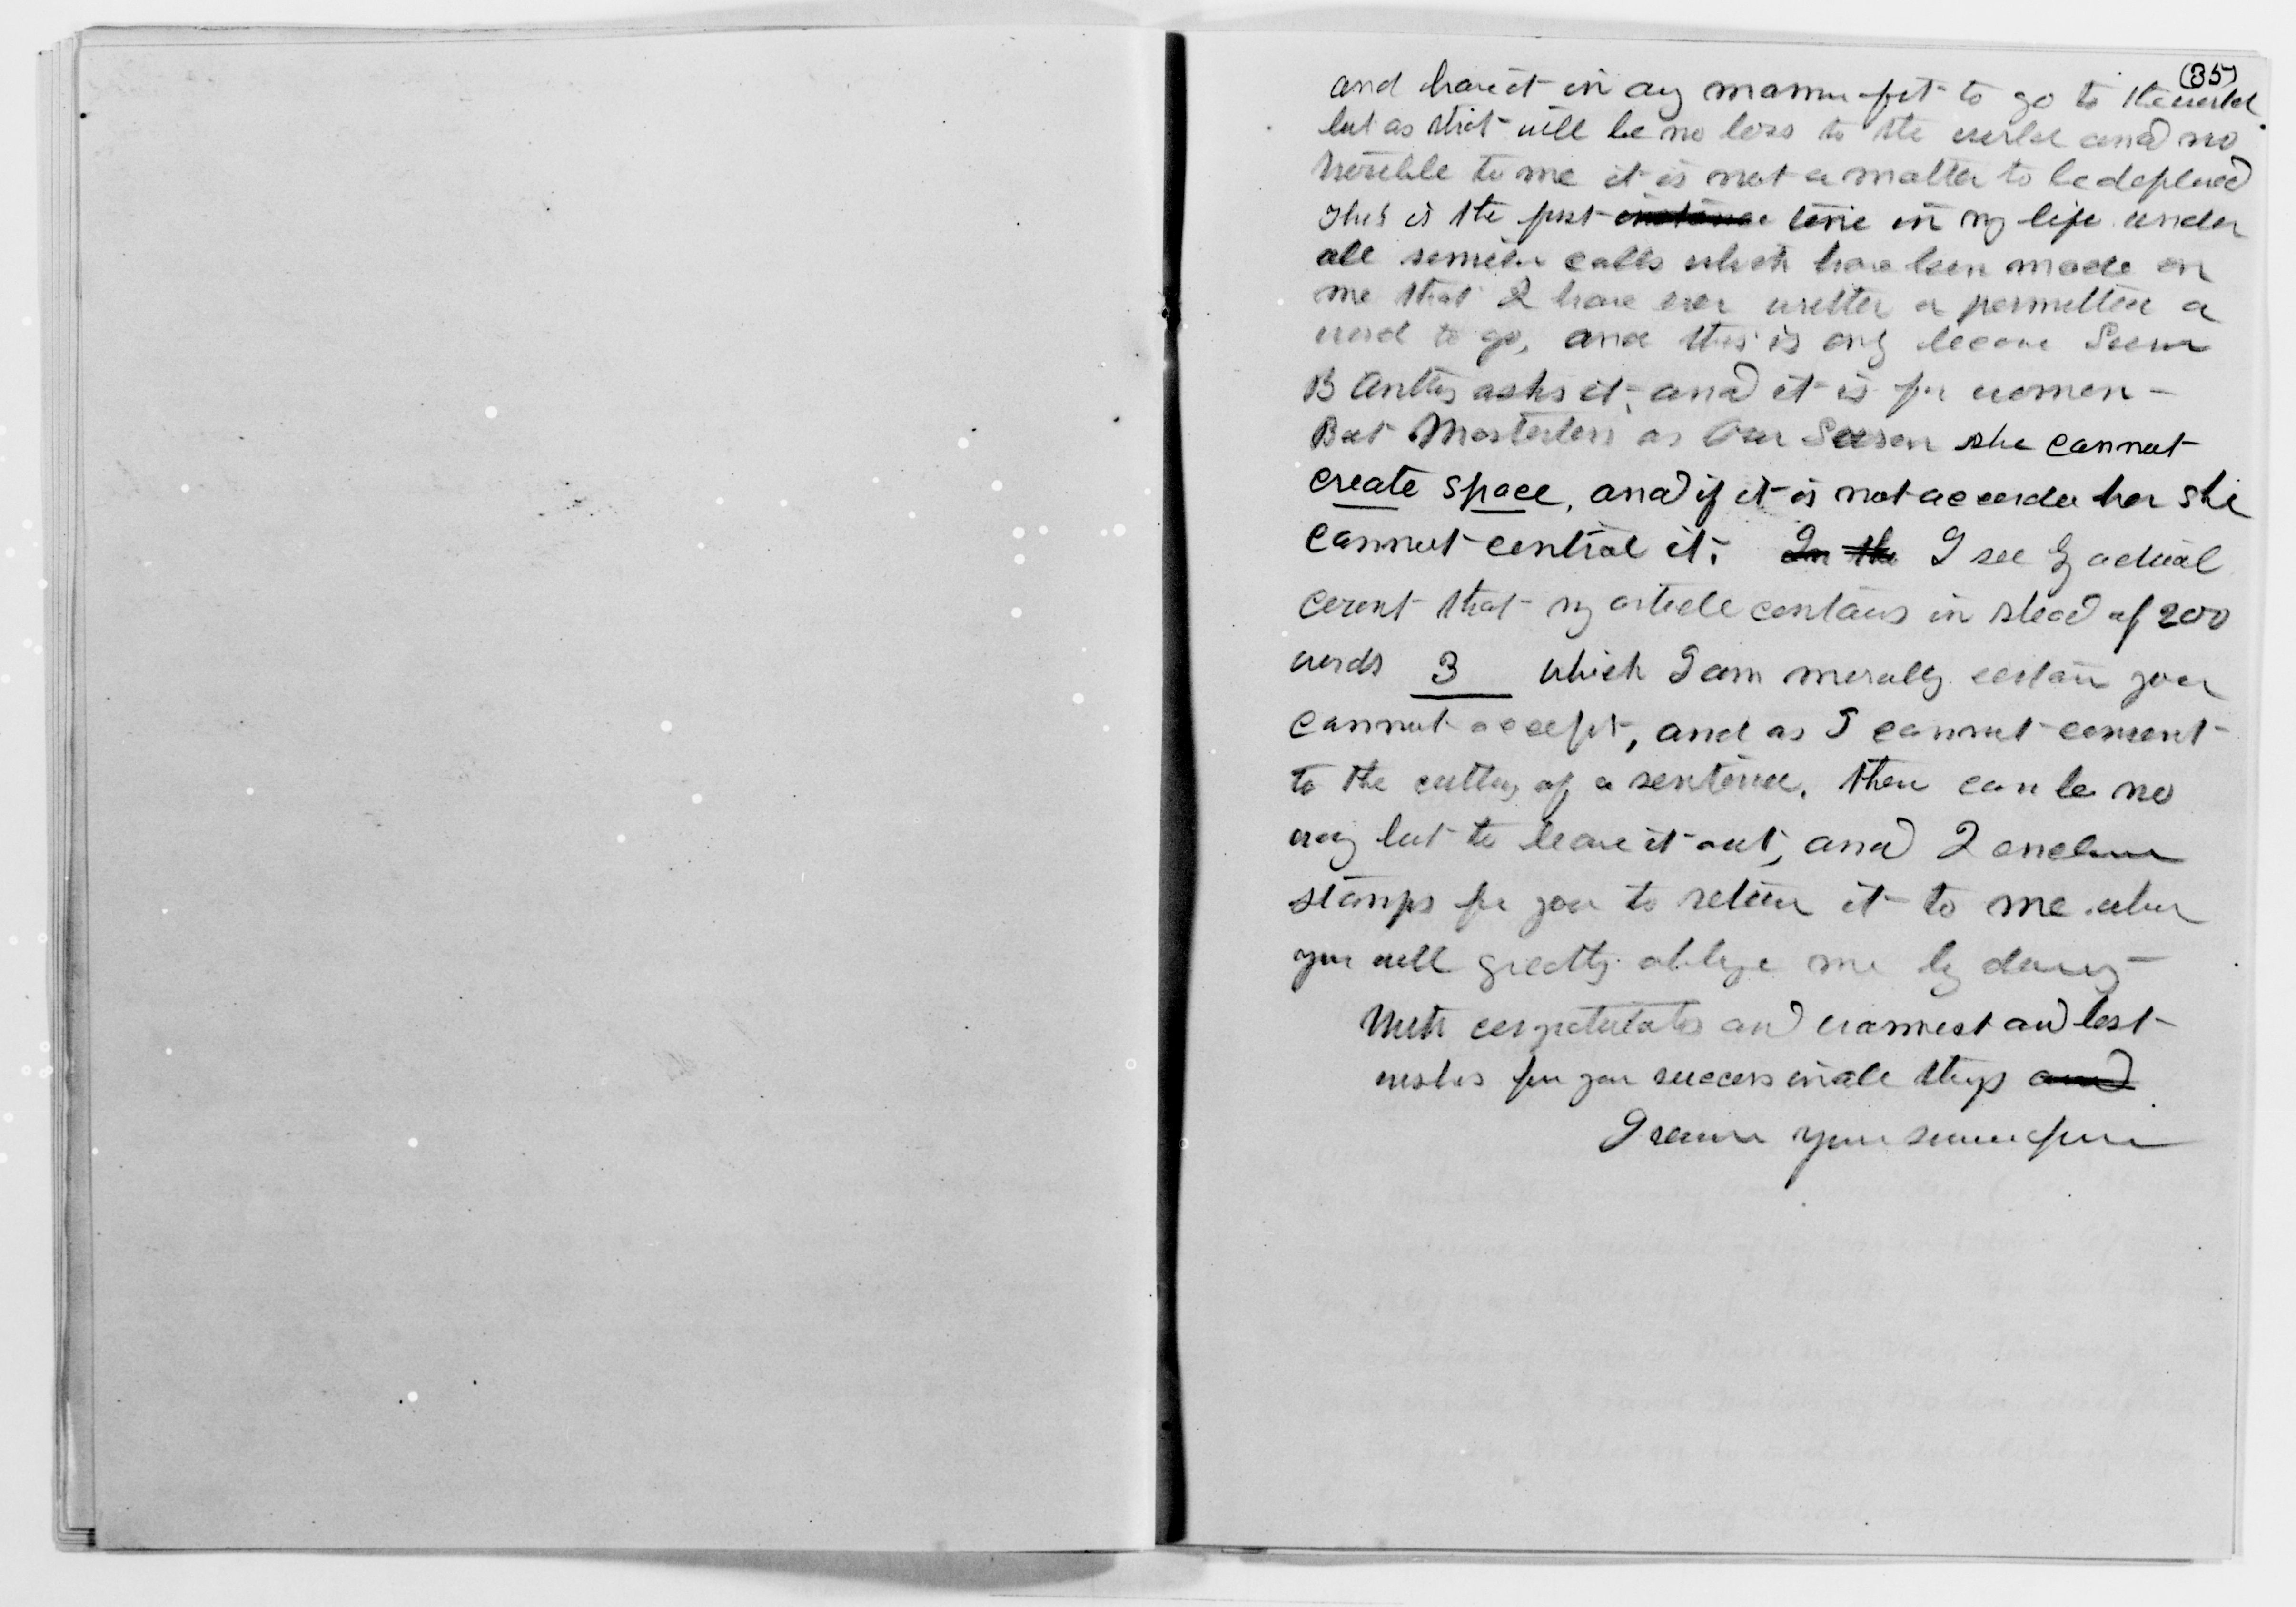 (35)
and have it in any manner fit to go to the world.
but as that will be no loss to the world and no
trouble to me it is not a matter to be deplored
This is the first instance time in my life under
all similar calls which have been made on
me that I have ever written or permitted a
word to go, and this is only because Susan
B Anthony asks it, and it is for women -
But Masterless as Our Susan she cannot
create space, and if it is not accorded her she
cannot control it. In the I see by actual
count that my article contains in stead of 200
words 3 which I am morally certain you
cannot accept, and as I cannot consent
to the cutting of a sentence, there can be no
way but to leave it out, and I enclose
stamps for you to return it to me when
you will greatly oblige me by doing -
With congratulations and warmest and best
wishes for your success in all things and
I remain yours sincerely